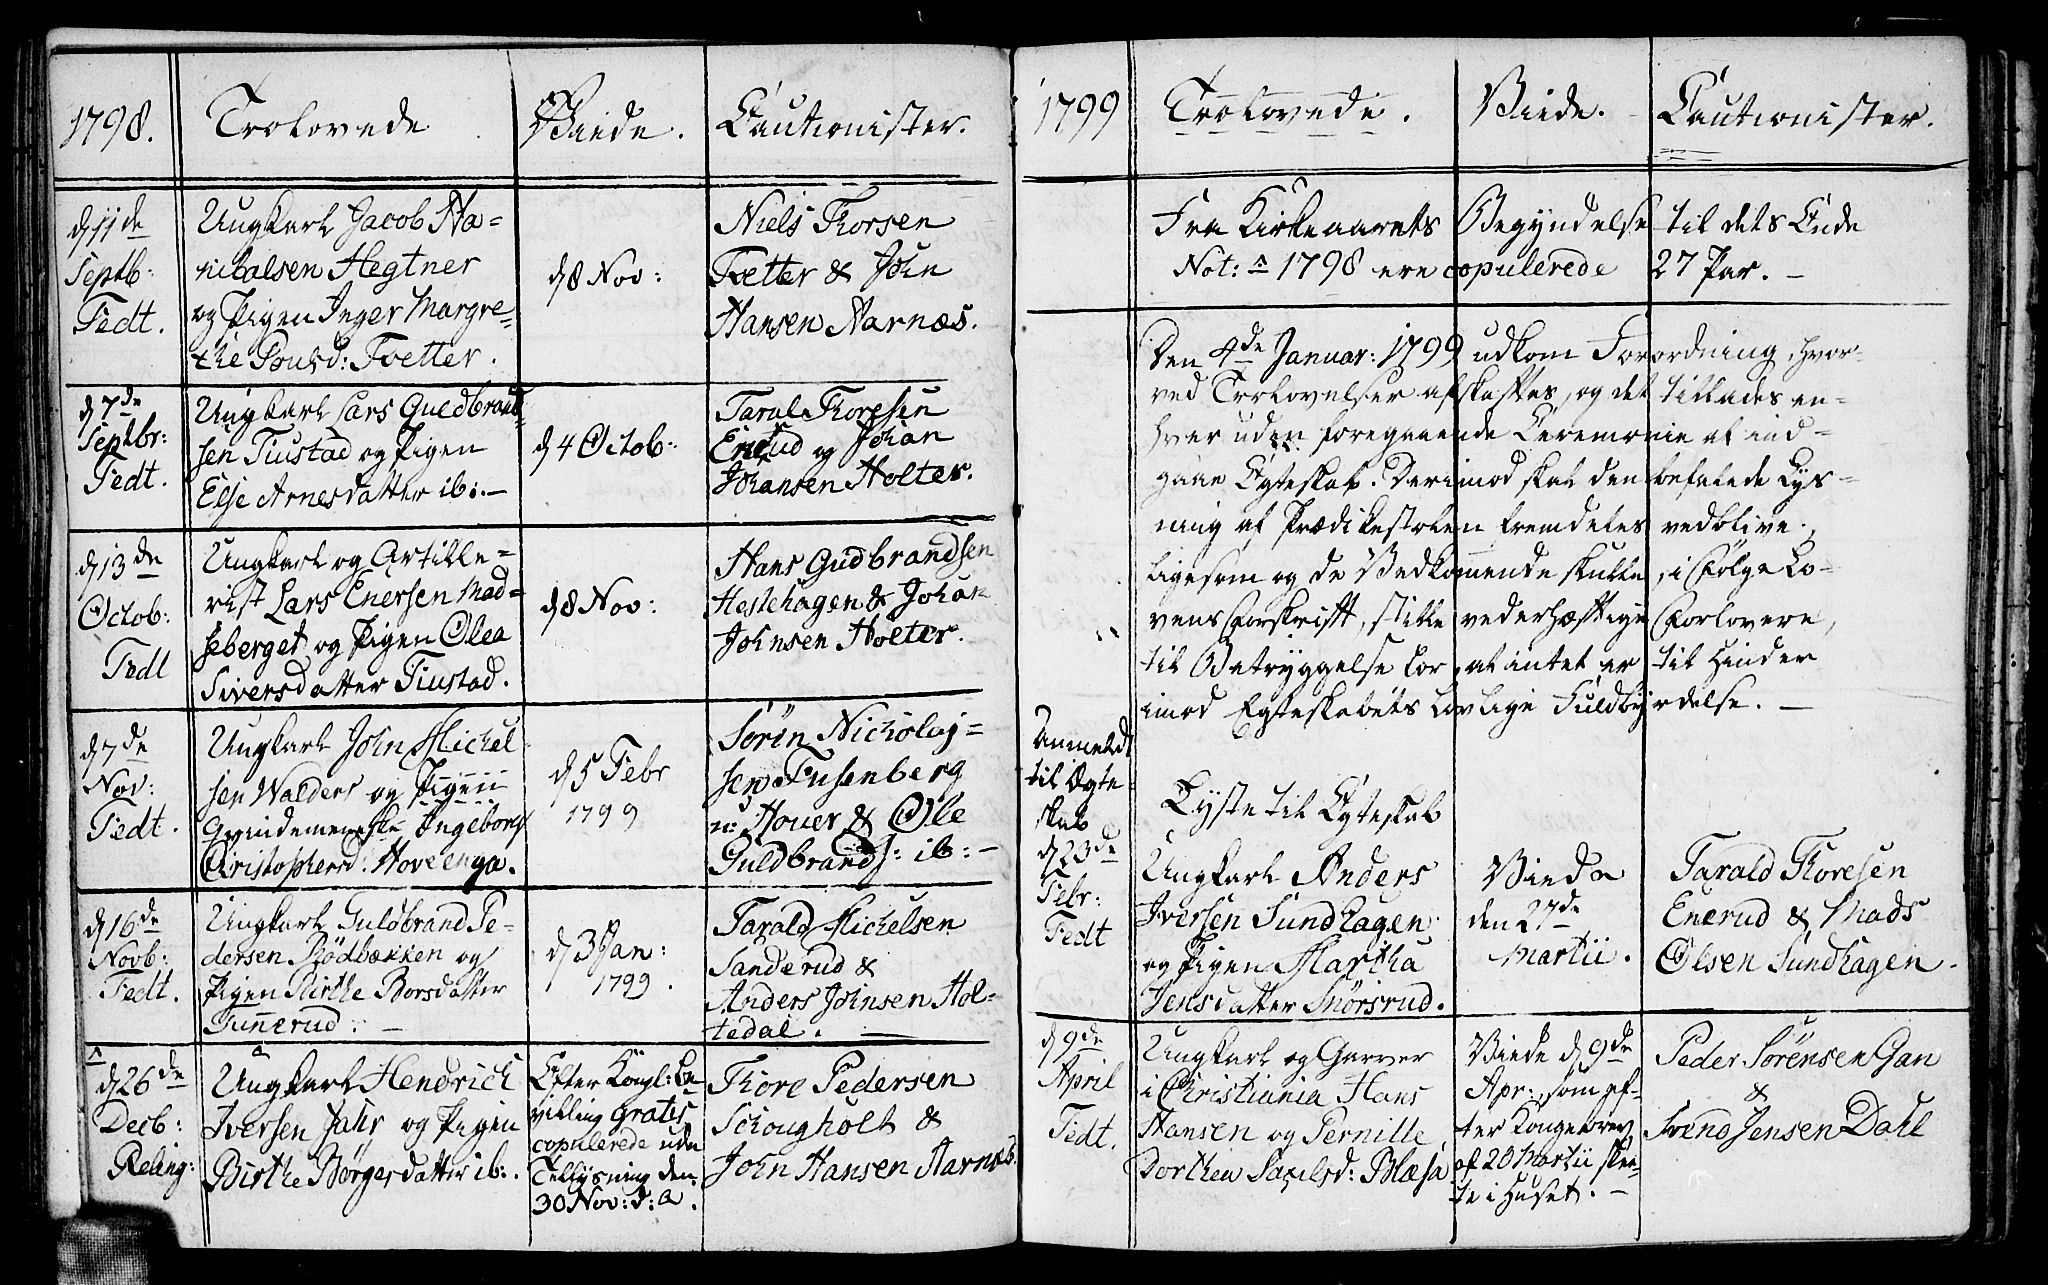 1798.
Trolovede
Viede.
Cautionister.
d 11de
Septb:
Fedt.
Ungkarl Jacob Ha-
nibalsen Hegtner
og Pigen Inger Margre-
the Poulsd: Tvetter.
d 8 Nov:
Niels Thorsen
Tvetter & John
Hansen Aarnæs.
d 7de
Septbr:
Fedt.
Ungkarl Lars Guldbrand-
sen Tiustad og Pigen
Else Arnesdatter ib:.-
d 4 Octob:
Taral Thoresen
Enerud og Johan
Johansen Holter.
d 13de
Octob:
Fedt
Ungkarl og Artille-
rist Lars Enersen Mad-
seberget og Pigen Olea
Siversdatter Tiustad.
d 8 Nov:
Hans Gudbrandsen
Hestehagen & Johan
Johnsen Holter.
d 7de
Nov:
Fedt.
Ungkarl John Michel-
sen Walders og Pigen
Qvindemenske Ingeborg
Christophersd: Hoveenga.
d 5 Febr
1799
Sörin Nicholaj-
sen Fusenberg
n: Houer & Ole
Guldbrands: ib:-
d 16de
Novb:
Fedt.
Ungkarl Guldbrand Pe-
dersen Rödbækken og
Pigen Birthe Borsdatter
Tunnerud. -
d 3 Jan:
1799.
Tarald Michelsen
Sanderud &
Anders Johnsen Hol-
tedal. -
d 26de
Decb:
Reling:
Ungkarl Hendrich
Iversen Jahr og Pigen
Birthe Börgersdatter ib:.
Efter Kongl: Be-
villing gratis
copulerede uden
Tillysning den
30 Nov: d: a.
Thore Pedersen
Schougholt &
John Hansen Aarnæs.
1799
Trolovede.
Viede.
Cautionister.
Fra Kirkeaarets Begyndelse til dets Ende
Not: a 1798 ere copulerede 27 Par. -
Den 4de Januar: 1799 udkom Forordning, hvor-
ved Trolovelser afskaffes, og det tillades en-
hver uden foregaaende Ceremonie at ind-
gaae Egteskab. Derimod skal den befalede Lys-
ning af Prædikestolen fremdeles vedblive,
ligesom og de Vedkommende skulle, i Fölge Lo-
vens Forskrift, stille vederhæftige Forlovere,
til Betryggelse for, at intet er til Hinder
imod Egteskabets lovlige Fuldbyrdelse. -
Anmeldt
til Ægte-
skab
d 23de
Febr:
Fedt
Lyste til Egteskab
Ungkarl Anders
Iversen Sundhagen
og Pigen Martha
Jensdatter Snörsrud.
Viede
den 27de
Martii.
Tarald Thoresen
Enerud & Mads
Olsen Sundhagen.
d 9de
April
Fedt.
Ungkarl og Garver
i Christiania Hans
Hansen og Pernille
Dorthea Paulsd: Blæsa
Viede d 9de
Apr: som ef-
ter Kongebrev
af 20 Martii skee-
te i Huset. -
Peder Sörensen Gan
&
Svend Jensen Dahl